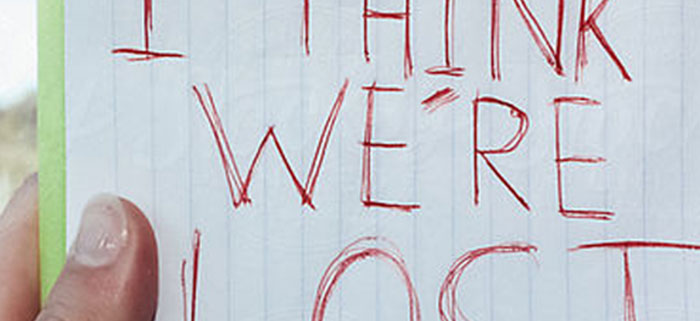 I THINK
WE'RE
LOST